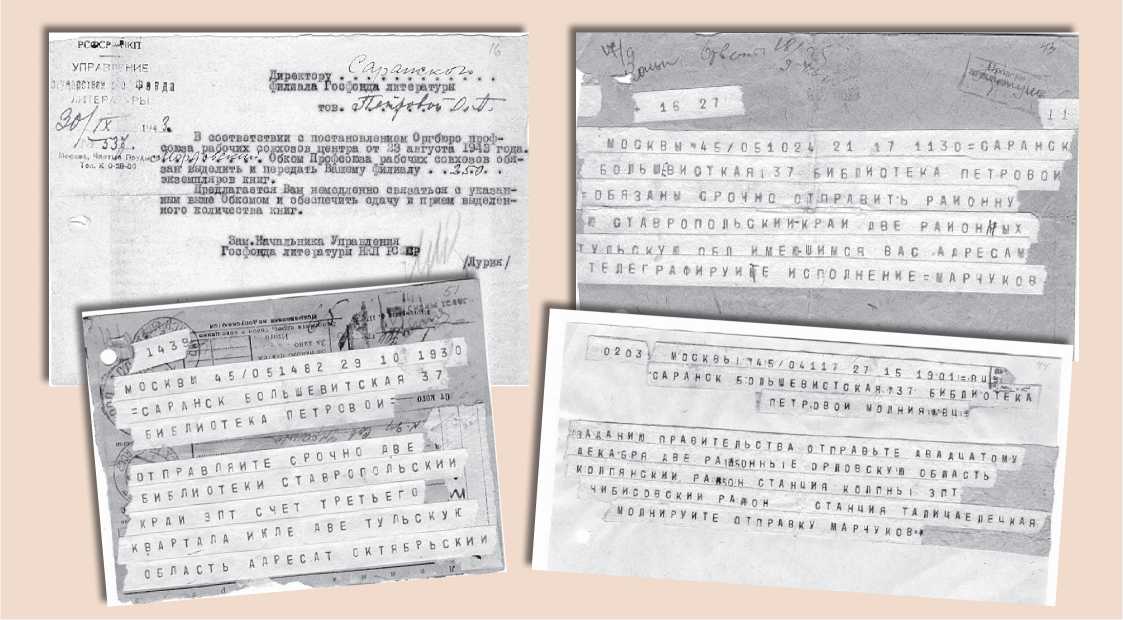 РСФСР–НКП
УПРАВЛЕНИЕ
Фонда
ЛИТЕРАТУРЫ
30/IX 194 3
537
16
Директору Саранского
филиала Госфонда литературы
тов. Петровой
В соответствии с постановлением Оргбюро проф-
союза рабочих совхозов центра от 23 августа 1943 года.
Мордовский Обком Профсоюза рабочих совхозов обя-
зан выделить и передать Вашему филиалу . . 250.
экземпляров книг.
Предлагается Вам немедленно связаться с указан-
ным выше Обкомом и обеспечить сдачу и прием выделен-
ного количества книг.
Зам.Начальника Управления
Госфонда литературы НКП РСФСР
/Лурик/
43
16 27
11
МОСКВЫ 45/051024 21 17 1130=САРАНСК
БОЛЬШЕВИСТКАЯ 37 БИБЛИОТЕКА ПЕТРОВОЙ
=ОБЯЗАНЫ СРОЧНО ОТПРАВИТЬ РАЙОННУ
Ю СТАВРОПОЛЬСКИЙ КРАЙ ДВЕ РАЙОННЫХ
ТУЛЬСКУЮ ОБЛ ИМЕЮЩИМСЯ ВАС АДРЕСАМ
ТЕЛЕГРАФИРУЙТЕ ИСПОЛНЕНИЕ=МАРЧУКОВ
51
1438
МОСКВЫ 45/051482 29 10 1930
=САРАНСК БОЛЬШЕВИТСКАЯ 37
БИБЛИОТЕКА ПЕТРОВОЙ=
От кого
ОТПРАВЛЯЙТЕ СРОЧНО ДВЕ
БИБЛИОТЕКИ СТАВРОПОЛЬСКИЙ
КРАЙ ЗПТ СЧЕТ ТРЕТЬЕГО
КВАРТАЛА ИКЛЕ ДВЕ ТУЛЬСКУЮ
ОБЛАСТЬ АДРЕСАТ ОКТЯБРЬСКИЙ
0203
МОСКВЫ 45/04117 27 15 1901=
САРАНСК БОЛЬШЕВИСТСКАЯ 37 БИБЛИОТЕКА
ПЕТРОВОЙ МОЛНИЯ
ЗАДАНИЮ ПРАВИТЕЛЬСТВА ОТПРАВЬТЕ ДВАДЦАТОМУ
ДЕКАБРЯ ДВЕ РАЙОННЫЕ ОРЛОВСКУЮ ОБЛАСТЬ
КОЛПЯНСКИЙ РАЙОН СТАНЦИЯ КОЛПНЫ ЗПТ
ЧИБИСОВСКИЙ РАЙОН СТАНЦИЯ ТАЛИЧАЕЛЕЦКАЯ
МОЛНИРУЙТЕ ОТПРАВКУ МАРЧУКОВ